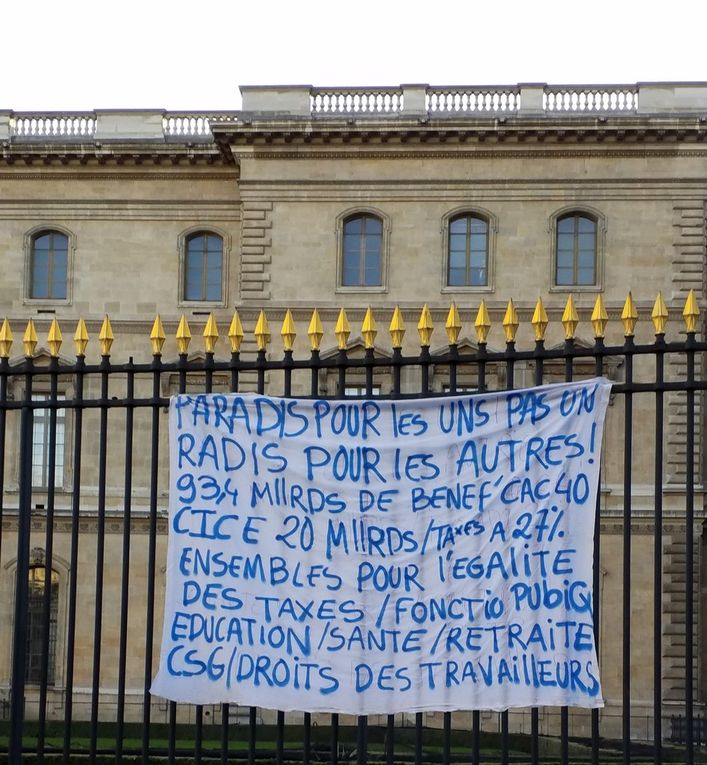 PARADIS POUR lES UNS PAS UN
RADIS POUR lES AUTRES!
93,4 MIIRDS DE BENEF' CAC 40
CICE 20 MIIRDS/TAXES A 27%
ENSEMBLES POUR l'EGALITE
DES TAXES/FONCTIO PUbiQ
EDUCATION/SANTE/RETRAITE
CSG/DROITS DES TRAVAillEURS